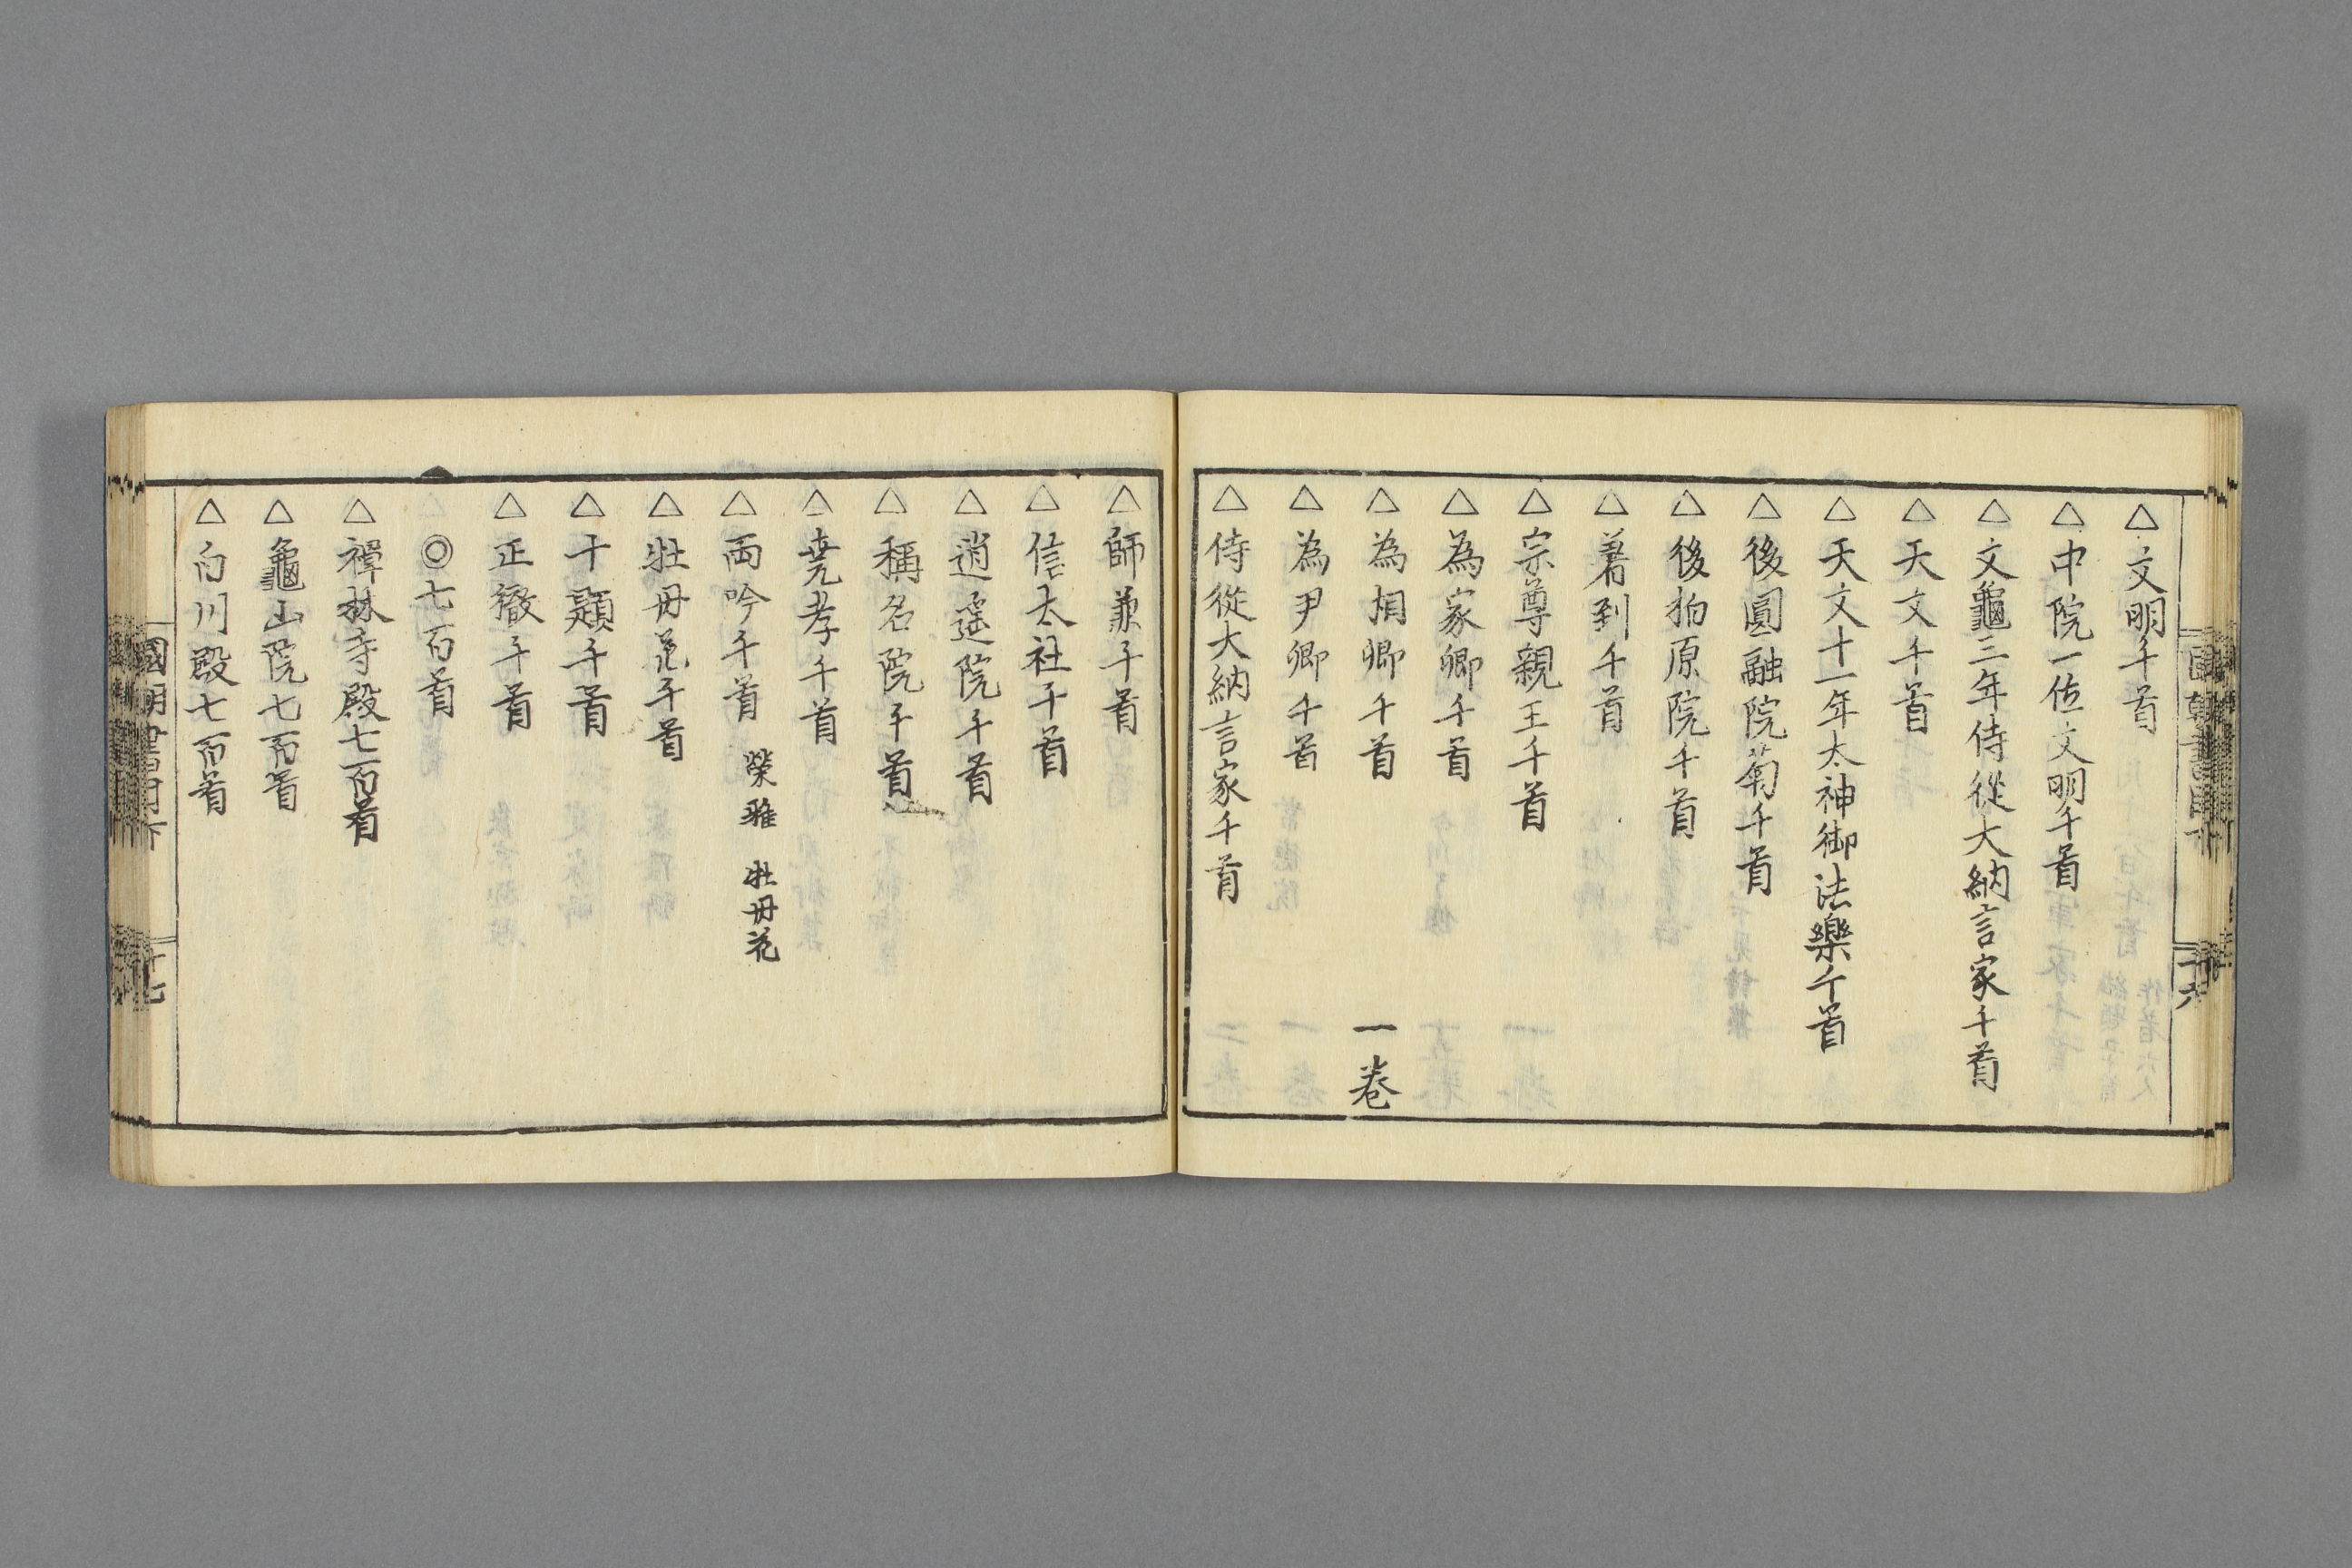 △文明千首
△中院一位文明千首
△文龜三年侍從大納言家千首
△天文千首
△天文十一年太神御法樂千首
△後圓融院菊千首
△後柏原院千首
△着到千首
△宗尊親王千首
△為家卿千首
△為相卿千首 一卷
△為尹卿千首
△侍從大納言家千首
△師兼千首
△信太社千首
△逍遥院千首
△稱名院千首
△尭孝千首
△両吟千首 榮雅 牡丹花
△牡丹花千首
△十題千首
△正徹千首
◎七百首
△禅林寺殿七百首
△龜山院七百首
△白川殿七百首
十七